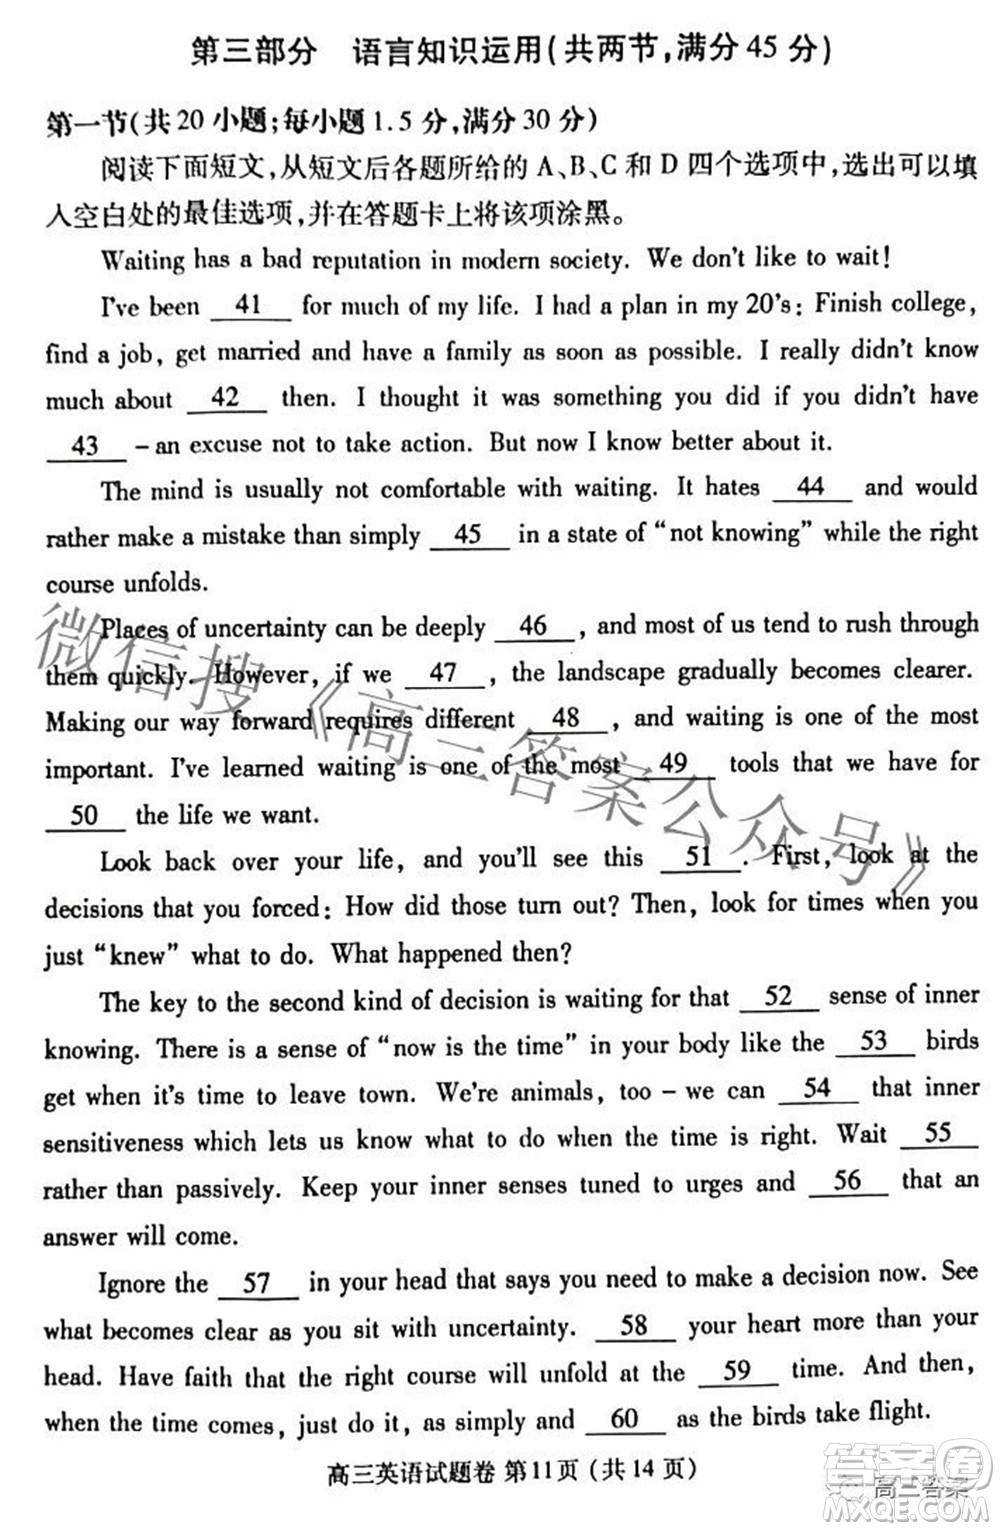 第三部分 语言知识运用(共两节,满分45分)
第一节(共20小题;每小题1.5分,满分30分)
阅读下面短文,从短文后各题所给的A、B、C和D四个选项中,选出可以填
入空白处的最佳选项,并在答题卡上将该项涂黑。
Waiting has a bad reputation in modern society. We don't like to wait!
I've been 41 for much of my life. I had a plan in my 20's: Finish college,
find a job, get married and have a family as soon as possible. I really didn't know
much about 42 then. I thought it was something you did if you didn't have
43 – an excuse not to take action. But now I know better about it.
The mind is usually not comfortable with waiting. It hates 44 and would
rather make a mistake than simply 45 in a state of “not knowing” while the right
course unfolds.
Places of uncertainty can be deeply 46 , and most of us tend to rush through
them quickly. However, if we 47 , the landscape gradually becomes clearer.
Making our way forward requires different 48 , and waiting is one of the most
important. I've learned waiting is one of the most 49 tools that we have for
50 the life we want.
Look back over your life, and you'll see this 51 . First, look at the
decisions that you forced: How did those turn out? Then, look for times when you
just “knew” what to do. What happened then?
The key to the second kind of decision is waiting for that 52 sense of inner
knowing. There is a sense of “now is the time” in your body like the 53 birds
get when it's time to leave town. We're animals, too – we can 54 that inner
sensitiveness which lets us know what to do when the time is right. Wait 55
rather than passively. Keep your inner senses tuned to urges and 56 that an
answer will come.
Ignore the 57 in your head that says you need to make a decision now. See
what becomes clear as you sit with uncertainty. 58 your heart more than your
head. Have faith that the right course will unfold at the 59 time. And then,
when the time comes, just do it, as simply and 60 as the birds take flight.
高三英语试题卷 第11页(共14页)
微信搜《高三答案公众号》
高三答案
答案圈
MXQE.COM